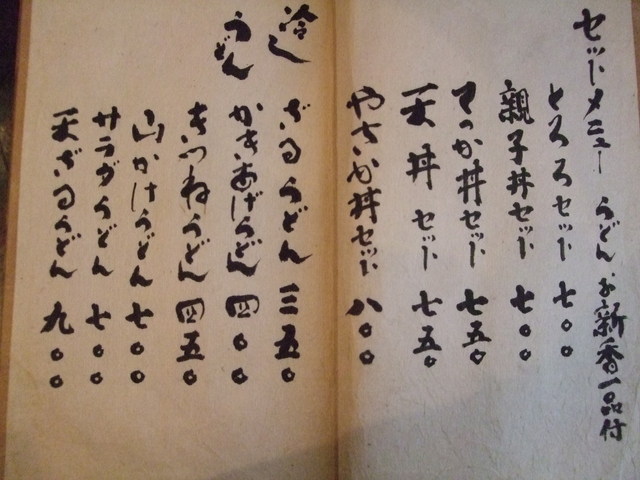 セットメニュー うどん お新香一品付
とろろセット 七〇〇
親子丼セット 七〇〇
てっか丼セット 七五〇
天丼セット 七五〇
やきにく丼セット 八〇〇
冷し
うどん
ざるうどん 三五〇
かきあげうどん 四〇〇
きつねうどん 四五〇
山かけうどん 七〇〇
サラダうどん 七〇〇
天ざるうどん 九〇〇